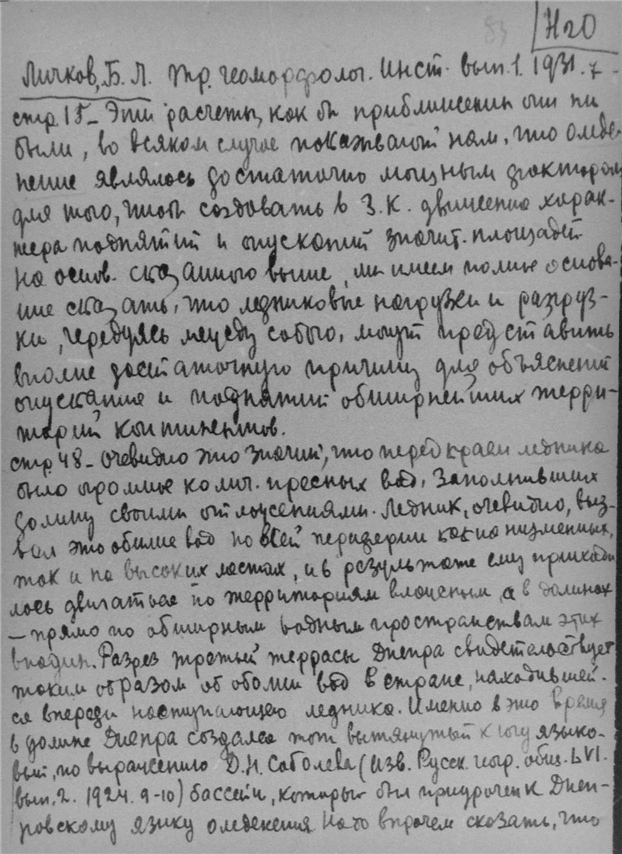 83
H20
Личков, Б.Л. Тр. геоморфолог. Инст. вып.1. 1931. 7-
стр.15 - Эти расчеты, как бы приближенны они ни
были, во всяком случае показывают нам, что оледе-
нение являлось достаточно мощным фактором
для того, чтобы создавать в З.К. движения харак-
тера поднятий и опусканий значит. площадей
На основ. сказанного выше, мы имеем полное основа-
ние сказать, что ледниковые нагрузки и разгруз-
ки, чередуясь между собою, могут представить
вполне достаточную причину для объяснений
опускания и поднятий обширнейших терри-
торий континентов.
стр 48 - Очевидно это значит, что перед краем ледника
было огромное колич. пресных вод, заполнивших
долину своими отложениями. Ледник, очевидно, выз-
вал это обилие вод по всей периферии как на низменных,
так и на высоких местах, и в результате ему приходи
лось двигаться по территориям влажным, а в долинах
- прямо по обширным водным пространствам этих
впадин. Разрез третьей террасы Днепра свидетельствует
таким образом об обилии вод в стране, находившей-
ся впереди наступающего ледника. Именно в это время
в долине Днепра создался тот вытянутый к югу языко-
вый, по выражению Д.Н. Соболева (Изв. Русск. геогр. общ. LVI.
вып.2. 1924. 9-10) бассейн, который был приурочен к Днеп-
ровскому языку оледенения Надо впрочем сказать, что